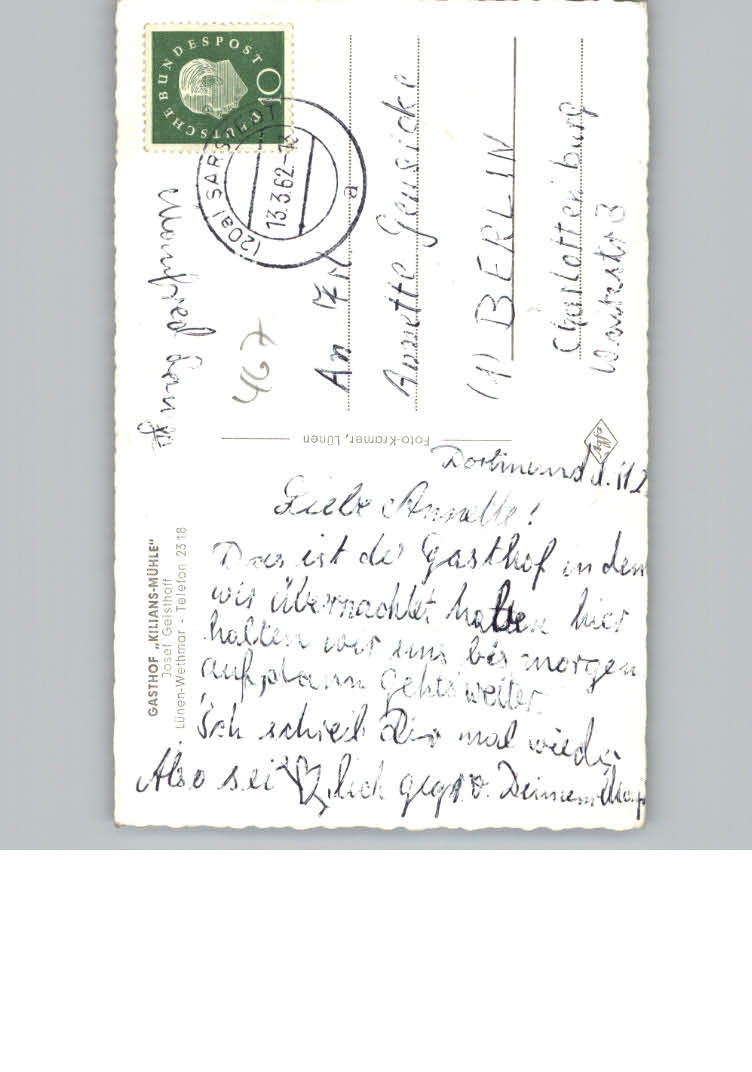 GASTHOF „KILIANS-MÜHLE"
Josef Geisthoff
Lünen-Wethmar - Telefon 2318
Dortmund d. 11.
Liebe Annette!
Das ist der Gasthof in dem
wir übernachtet haben hier
halten wir uns bis morgen
auf, dann gehts weiter.
Ich schreib Dir mal wieder
Also sei lich gegr. v. Deinem
Foto-Kramer, Lünen
Manfred Lange
DEUTSCHE BUNDESPOST
10
(20a) SARSTEDT
13.3.62.-18
a
467
An Frl
Annette Gensicke
(1) BERLIN
Charlottenburg